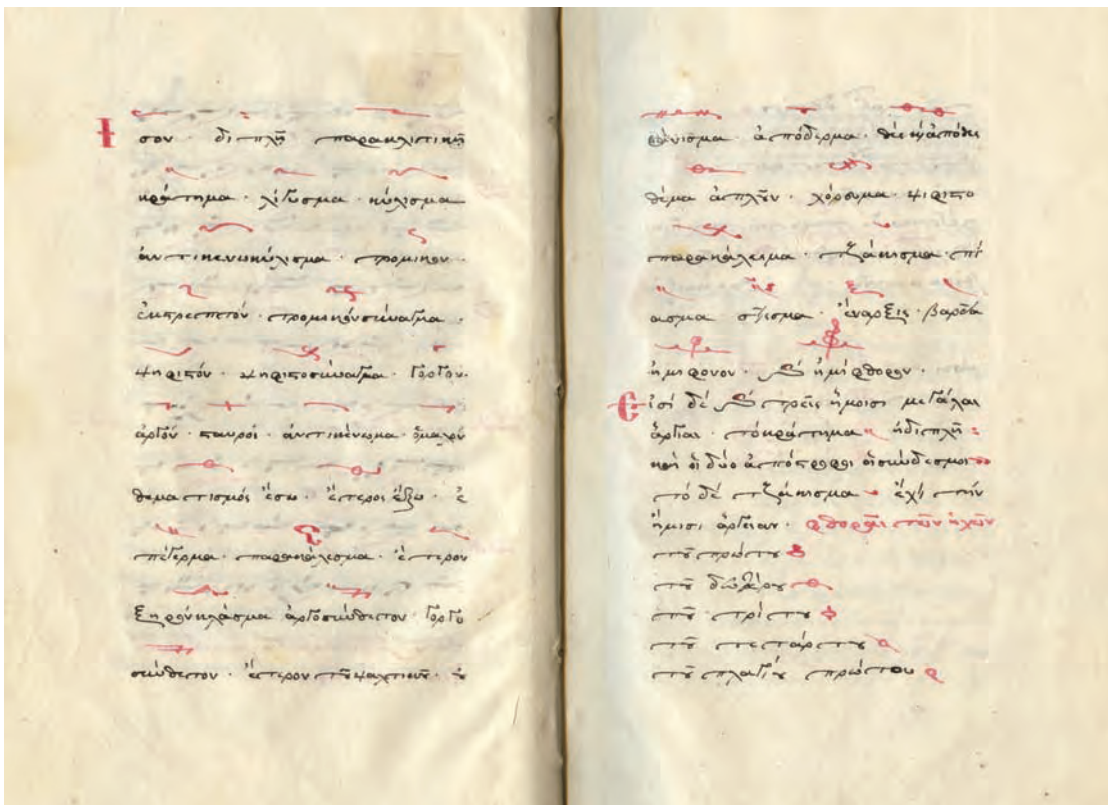 Ισον · διπλῆ παρακλιτικὴ
κράτημα · λίγυσμα · κύλισμα
ἀντικενωκύλισμα · τρομικον ·
ἐκστρεπτόν · τρομικόνσύναγμα ·
ψηφιστόν · ψηφιστοσύναγμα · γοργόν ·
ἀργόν · σταυροί · ἀντικένωμα · ὁμαλὸν
θεματισμός ἔσω · ἕτεροι ἔξω · ἐ
πέγερμα · παρακάλεσμα · ἕτερον
ξηρὸν κλάσμα ἀργοσύνθετον · γοργο
σύνθετον · ἕτερον τοῦ ψαλτικοῦ ·
οὐράνισμα · ἀπόδερμα · θὲς καὶ ἀπόθες
θέμα ἁπλοῦν · χόρευμα · ψηφιστο
παρακάλεσμα · τζάκισμα · πί
ασμα σεῖσμα · ἔναρξις · βαρεῖα
ἡμίφονον · ἡμίφθορον ·
Εἰσί δέ τρεῖς ἥμοισι μεγάλαι
ἀργίαι · τὸ κράτημα ἡ διπλῆ
καὶ οἱ δύο ἀπόστροφοι οἱ σύνδεσμοι
τό δέ τζάκισμα ἔχει τὴν
ἥμισι ἀργίαν · φθοραὶ τῶν ἠχῶν
τοῦ πρώτου
τοῦ δευτέρου
τοῦ τρίτου
τοῦ τετάρτου
τοῦ πλαγίου πρώτου